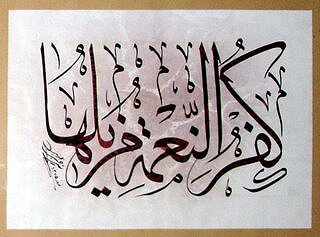 كفر النّعمة مزيلها